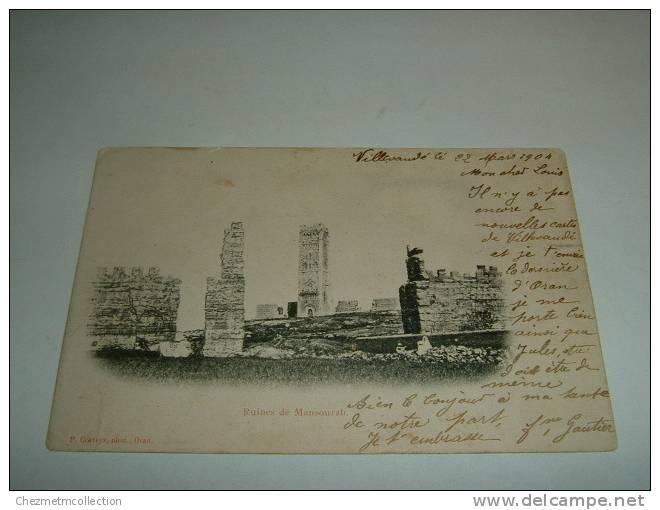 Villevaudé le 22 Mars 1904
Mon cher Louis
Il n'y a pas
encore de
nouvelles cartes
de Villevaudé
et je t'envoie
la dernière
d'Oran
je me
porte bien
ainsi que
Jules, tu
doit être de
même
Bien le bonjour à ma tante
de notre part,
Je t'embrasse
Gautier
Ruines de Mansourah.
phot., Oran.
Chezmetmcollection
delcampe.net